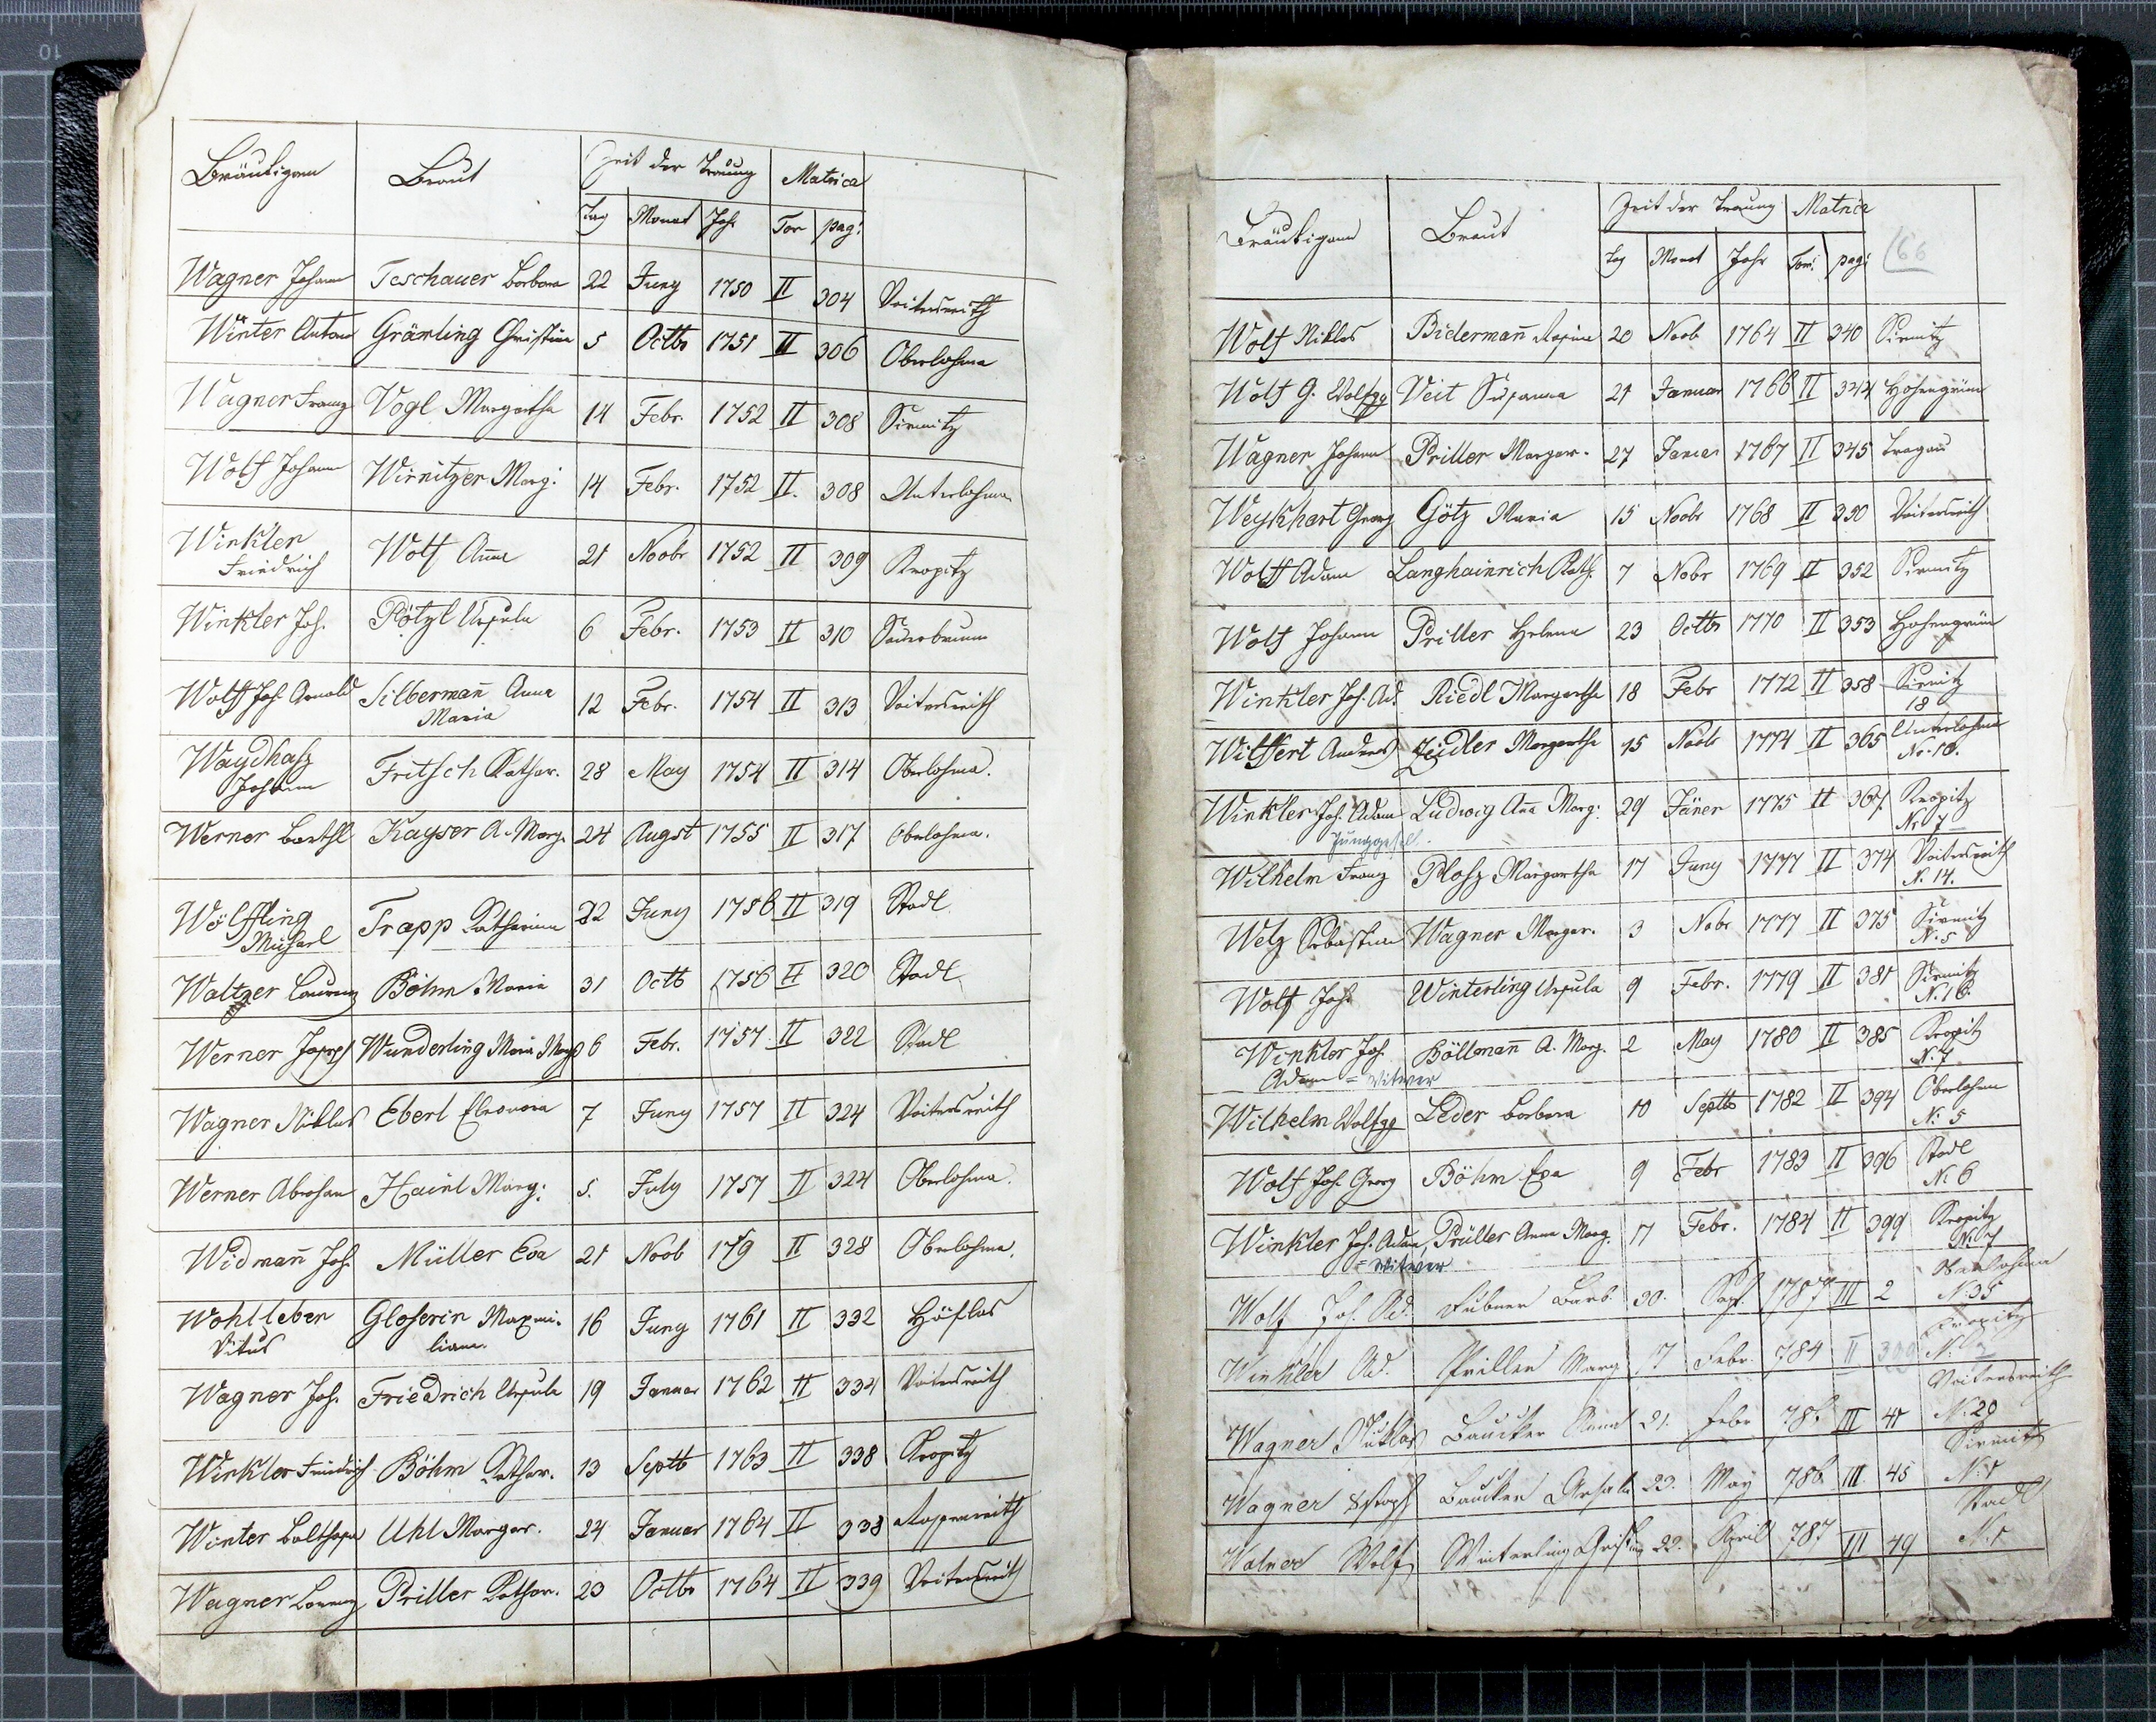 Bräutigam Braut Zeit der Trauung Matrica
Tag Monat Jahr Tom pag:
Wagner Johann Teschauer Barbara 22 Juny 1750 II 304 Voitersreith
Winter Anton Grämling Christina 5 Octb 1751 II 306 Oberlohma
Wagner Franz Vogl Margaretha 14 Febr. 1752 II 308 Sirmitz
Wolf Johann Wirnitzer Marg: 14 Febr. 1752 II. 308 Unterlohma
Winkler
Friedrich Wolf Anna 21 Novbr 1752 II 309 Kropitz
Winkler Joh. Pötzl Ursula 6 Febr. 1753 II 310 Sauerbrunn
Wolff Joh Arnold Silbermañ Anna
Maria 12 Febr. 1754 II 313 Voitersreith
Waydhaß
Johann Fritsch Kathar. 28 May 1754 II 314 Oberlohma.
Werner Barthl Kayser A. Marg. 24 Augst 1755 II 317 Oberlohma.
Wölffling
Michael Trapp Katharina 22 Juny 1756 II 319 Stadl
Waltzer Laurenz Böhm Maria 31 Octb 1756 II 320 Stadl
Werner Joseph Wunderling Maria Marg 6 Febr. 1757 II 322 Stadl
Wagner Niklas Eberl Eleonora 7 Juny 1757 II 324 Voitersreith
Werner Abraham Hainl Marg: 5. July 1757 II 324 Oberlohma.
Widmañ Joh. Müller Eva 21 Novb 1759 II 328 Oberlohma.
Wohlleben
Vitus Gloserin Maximi-
liana. 16 Juny 1761 II 332 Höflas
Wagner Joh. Friedrich Ursula 19 Januar 1762 II 334 Voitersreith
Winkler Friedrich Böhm Kathar. 13 Septb 1763 II 338 Kropitz
Winter Balthasar Uhl Margar. 24 Januar 1764 II 338
Wagner Lorenz Priller Kathar. 23 Octb 1764 II 339 Voitersreith
Bräutigam Braut Zeit der Trauung Matrica
Tag Monat Jahr Tom: pag: 66
Wolf Niklas Bidermañ Rosina 20 Novb 1764 II 340 Sirmitz
Wolf G. Wolfgg Veit Susanna 21 Januar 1766 II 344 Höhengrün
Wagner Johann Priller Margar. 27 Januar 1767 II 345 Tragau
Weykhart Georg Götz Maria 15 Novbr 1768 II 350 Voitersreith
Wolff Adam Langhainrich Kath. 7 Nobr 1769 II 352 Sirmitz
Wolf Johann Priller Helena 23 Octb 1770 II 353 Hohengrün
Winkler Joh. Ad. Riedl Margaretha 18 Febr 1772 II 358 Sirmitz
18
Wilffert Andreas Zeidler Margaretha 15 Novb 1774 II 365 Unterlohma
No. 18.
Winkler Joh. Adam Ludwig Ana Marg: 29 Jäner 1775 II 367 Kropitz
Junggesell. No 7
Wilhelm Franz Ploß Margaretha 17 Juny 1777 II 374 Voitersreith
N. 14.
Welz Sebastian Wagner Margar. 3 Nobr 1777 II 375 Sirmitz
N. 5
Wolf Joh. Winterling Ursula 9 Febr. 1779 II 381 Sirmitz
N. 16.
Winkler Joh.
Adam = Witwer Böllmañ A. Marg. 2 May 1780 II 385 Kropitz
N. 7.
Wilhelm Wolfgg Leder Barbara 10 Septb 1782 II 394 Oberlohma
N: 5
Wolf Joh. Georg Böhm Eva 9 Febr 1783 II 396 Stadl
N: 6
Winkler Joh. Adam, Prüller Anna Marg. 17 Febr. 1784 II 399 Kropitz
= Witwer N: 7
Wolf Joh. Ad. Hübner Barb. 30. Sept. 1787 III 2 Oberlohma
N. 35
Winkler Ad. Priller Marg 17 Febr. 784 II Kropitz
Wagner Niklas 21. Febr 786 III 41 Voitersreith
N. 29
Wagner Ursula 23. May 786 III 45 Sirmitz
N. 1
Wolf Winterling 22. April 787 III 49 Stadl
N. 1